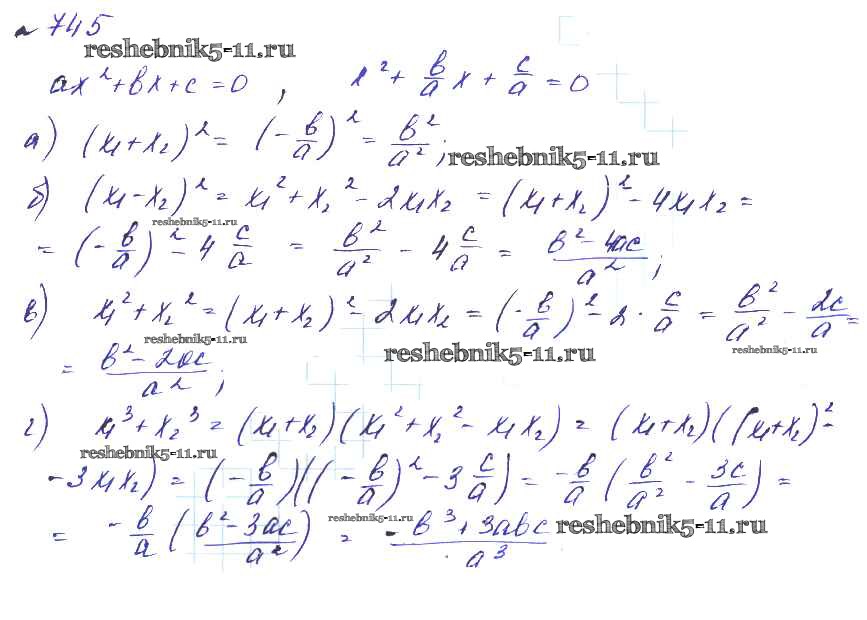 № 745
reshebnik5-11.ru
ax² + bx + c = 0 , x² + b/a x + c/a = 0
а) (x₁ + x₂)² = (- b/a)² = b²/a² ; reshebnik5-11.ru
б) (x₁ - x₂)² = x₁² + x₂² - 2x₁x₂ = (x₁ + x₂)² - 4x₁x₂ =
reshebnik5-11.ru
= (- b/a)² - 4 c/a = b²/a² - 4 c/a = (b² - 4ac)/a² ;
в) x₁² + x₂² = (x₁ + x₂)² - 2x₁x₂ = (- b/a)² - 2 · c/a = b²/a² - 2c/a =
reshebnik5-11.ru reshebnik5-11.ru reshebnik5-11.ru
= (b² - 2ac)/a² ;
г) x₁³ + x₂³ = (x₁ + x₂)(x₁² + x₂² - x₁x₂) = (x₁ + x₂)((x₁ + x₂)² -
reshebnik5-11.ru
- 3x₁x₂) = (- b/a)((- b/a)² - 3 c/a) = - b/a (b²/a² - 3c/a) =
= - b/a ((b² - 3ac)/a²) = (- b³ + 3abc)/a³
reshebnik5-11.ru reshebnik5-11.ru